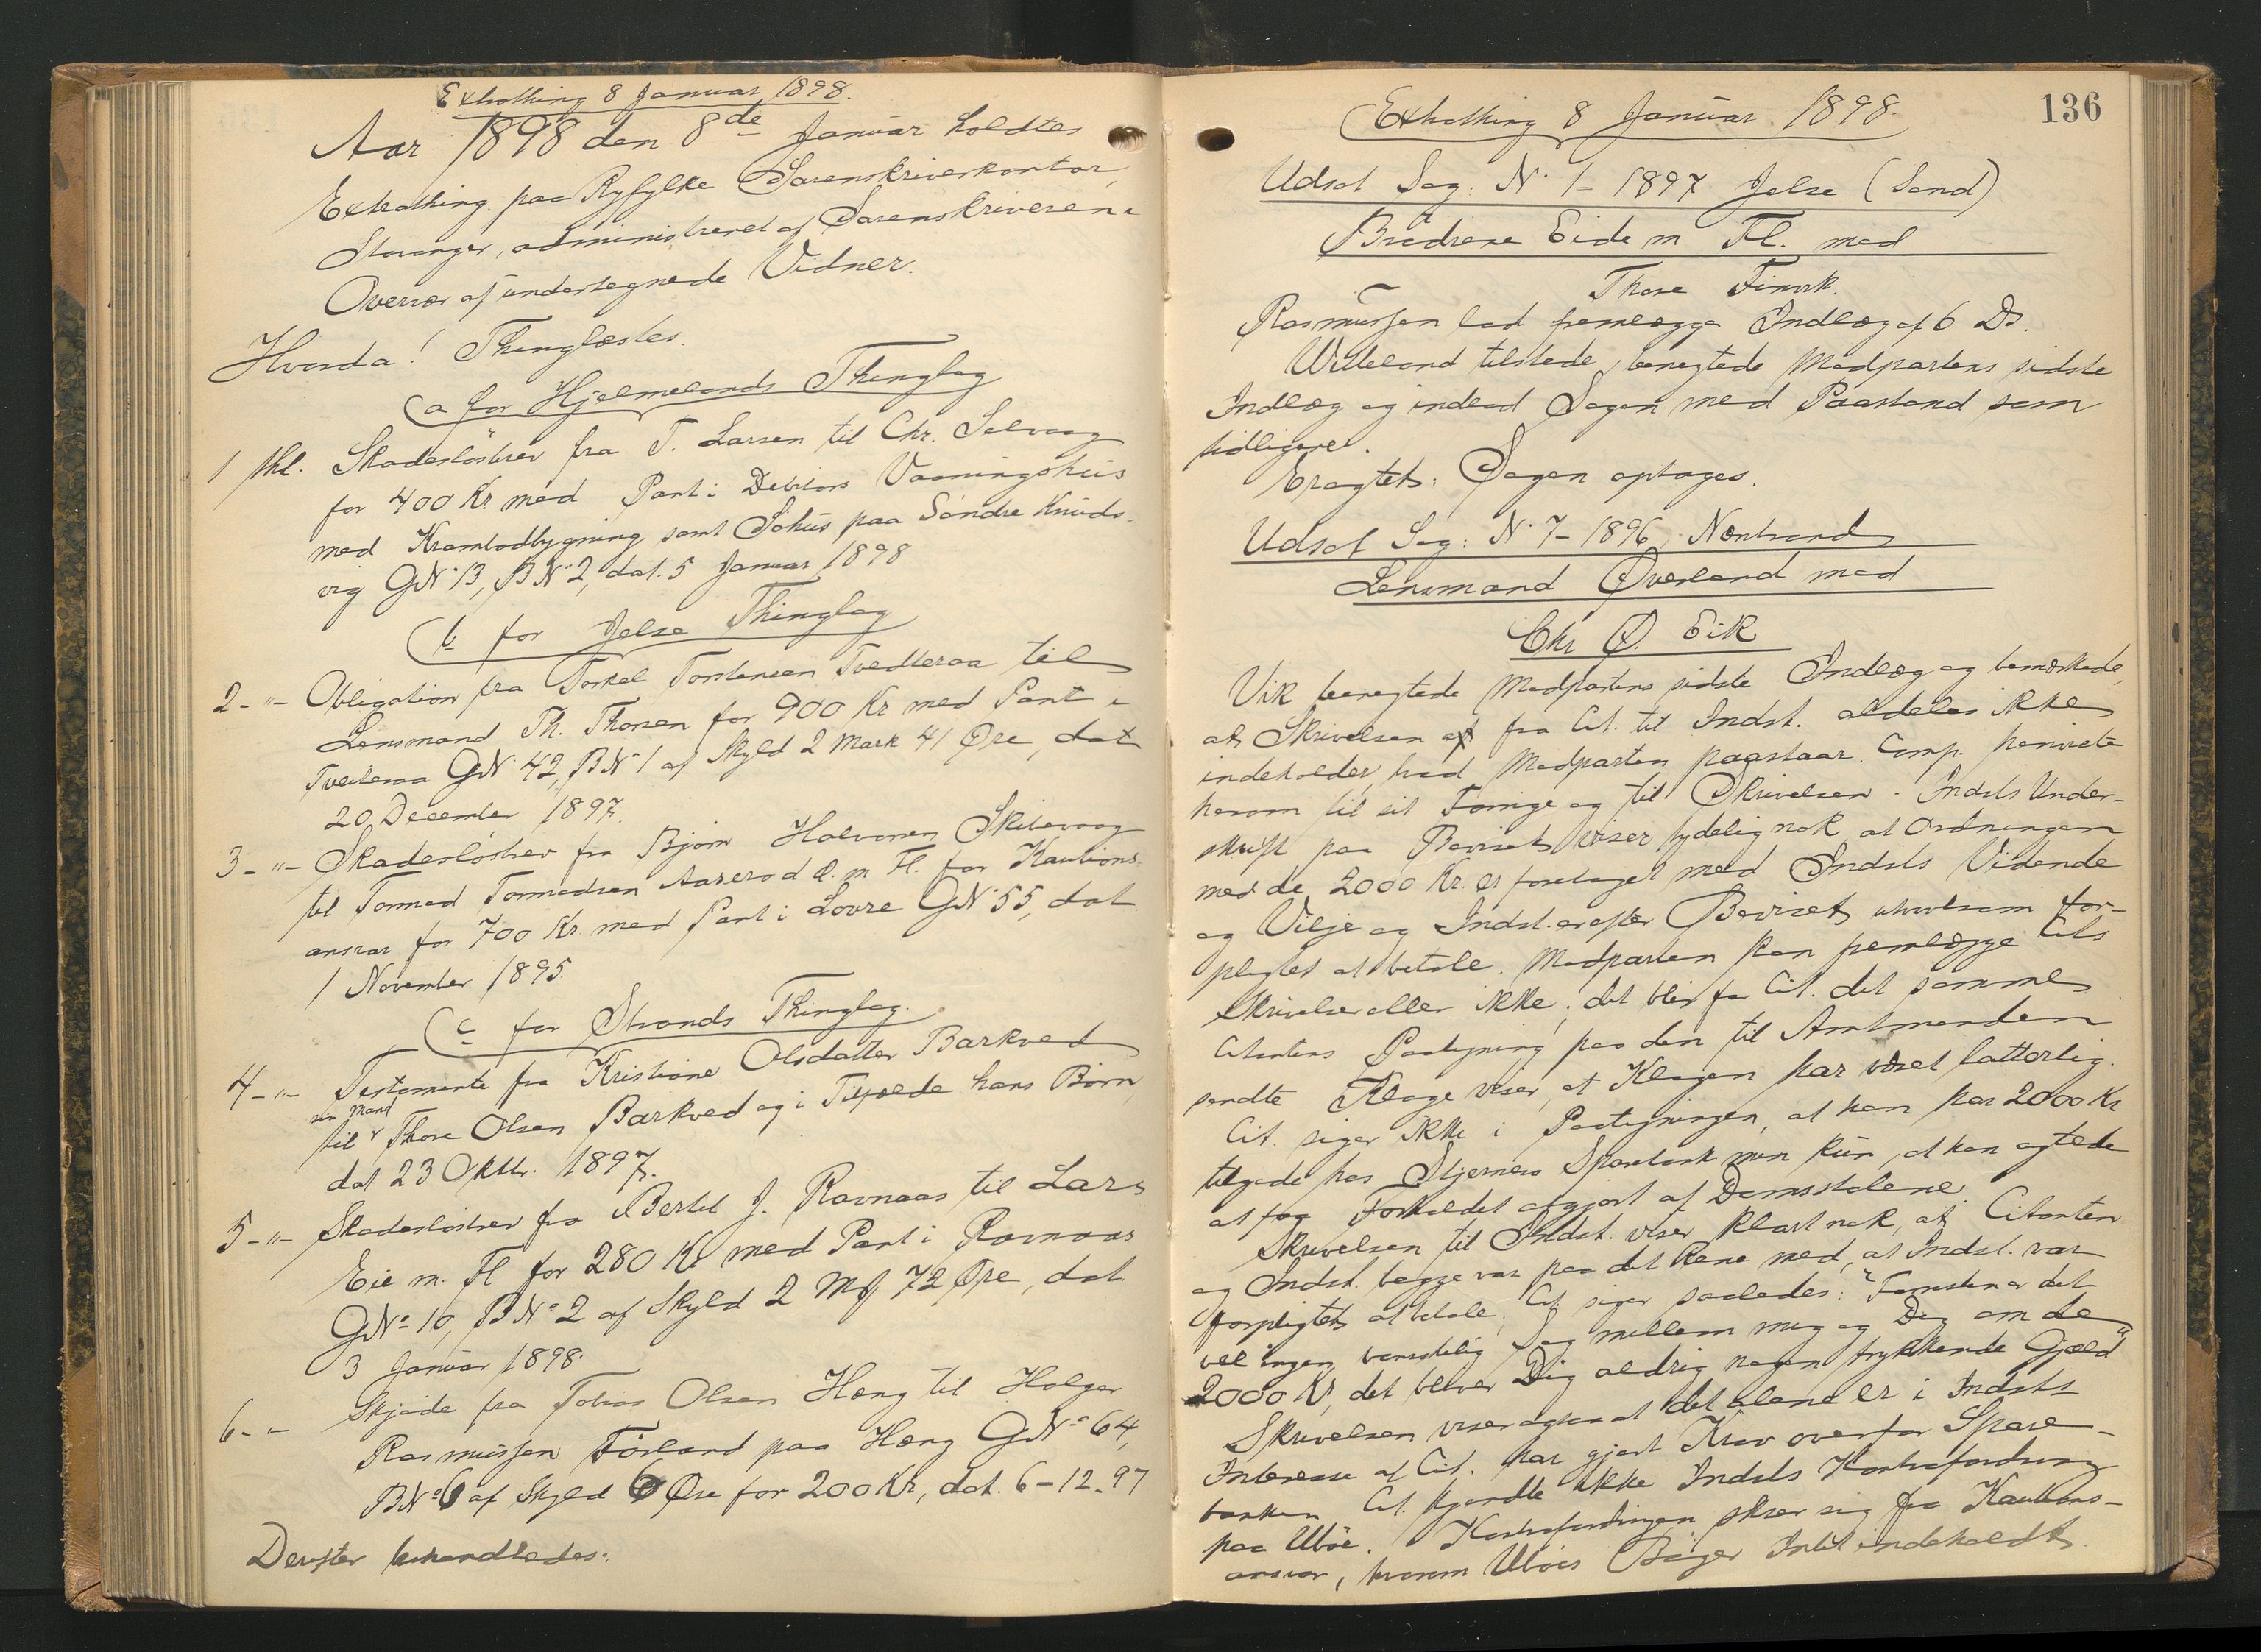 Extrathing 8 Januar 1898.
Aar 1898 den 8de Januar holdtes
Extrathing paa Ryfylke Sorenskriverkontor,
Stavanger, administreret af Sorenskriveren i
Overvær af undertegnede Vidner.
Hvorda! Thinglæstes.
a for Hjelmelands Thinglag
1 Skl. Skadesløsbrev fra T. Larsen til Chr. Selvaag
for 400 Kr med Pant i Debitors Vaaningshus
med Krambodbygning samt Søhus paa Søndre Knuds-
vig GN. 13, BN. 2, dat. 5 Januar 1898
b for Jelse Thinglag
2 -"- Obligation fra Torkel Torstensen Tveitteraa til
Lensmand Th. Thorsen for 900 Kr med Pant i
Tveiteraa GN. 42, BN. 1 af Skyld 2 Mark 41 Øre, dat
20 December 1897.
3 -"- Skadesløsbrev fra Bjørn Halvorsen Skitevaag
til Tormod Tormodsen Aarerød d. m. Fl. for Kautions-
ansvar for 700 Kr. med Pant i Lovre GN. 55, dat
1 November 1895.
c for Strands Thinglag.
4 -"- Testamente fra Kristiane Olsdatter Barkved
sin Mand
til Thore Olsen Barkved og i Tilfælde hans Børn,
dat 23 Oktbr. 1897.
5 -"- Skadesløsbrev fra Bertel J. Ravnaas til Lars
Eie m. Fl for 280 Kr med Pant i Ravnaas
GNo 10, BNo 2 af Skyld 2 Mk 72 Øre, dat
3 Januar 1898.
6 - " Skjøde fra Tobias Olsen Heng til Holger
Rasmussen Førland paa Heng GNo 64,
BNo 6 af Skyld 6 Øre for 200 Kr, dat. 6-12-97
Derefter behandledes:
136
Extrathing 8 Januar 1898.
Udsat Sag: N. 1 - 1897 Jelse (Sand)
Brødrene Eide m Fl. mod
Thore Finvik.
Rasmussen lod fremlægge Indlæg af 6 Ds.
Willeland tilstede, benegtede Modpartens sidste
Indlæg og indlod Sagen med Paastand som
tidligere.
Eragtet: Sagen optages.
Udsat Sag: N. 7 - 1896, Nerstrand
Lensmand Øverland mod
Chr Ø. Eik
Vik benegtede Modpartens sidste Indlæg og bemærkede,
at Skrivelsen fra Cit. til Indst. aldeles ikke
indeholder, hvad Modparten paastaar. Comp. henviste
herom til sit Forrige og til Skrivelsen. Indsts Under-
skrift paa Beviset viser tydelig nok, at Ordningen
med de 2000 Kr. er foretaget med Indsts Vidende
og Vilje og Indst. er efter Beviset utvivlsom for-
pligtet at betale. Modparten kan fremlægge Cits
Skrivelse eller ikke; det blir for Cit. det samme
Citantens Paategning paa den til Amtmanden
sendte Klage viser, at Klagen har været latterlig.
Cit. siger ikke i Paategningen, at han har 2000 Kr
tilgode hos Stjernerø Sparebank men kun, at han agtede
at faa Forholdet afgjort af Domstolene.
Skrivelsen til Indst. viser klart nok, at Citanten
og Indst. begge var paa det Rene med, at Indst. var
forpligtet at betale; Cit siger saaledes: "Forresten er det
vel ingen vanskelig Sag mellem mig og Dig om de
2000 Kr, det bliver Dig aldrig nogen trykkende Gjæld"
Skrivelsen viser ogsaa at det alene er i Indsts
Interesse at Cit. har gjort Krav overfor Spare-
banken. Cit. kjendte ikke Indsts Kontrafordring
paa Ubøe. Kontrafordringen skrev sig fra Kautions-
ansvar, hvorom Ubøes Bøger Intet indeholdt.